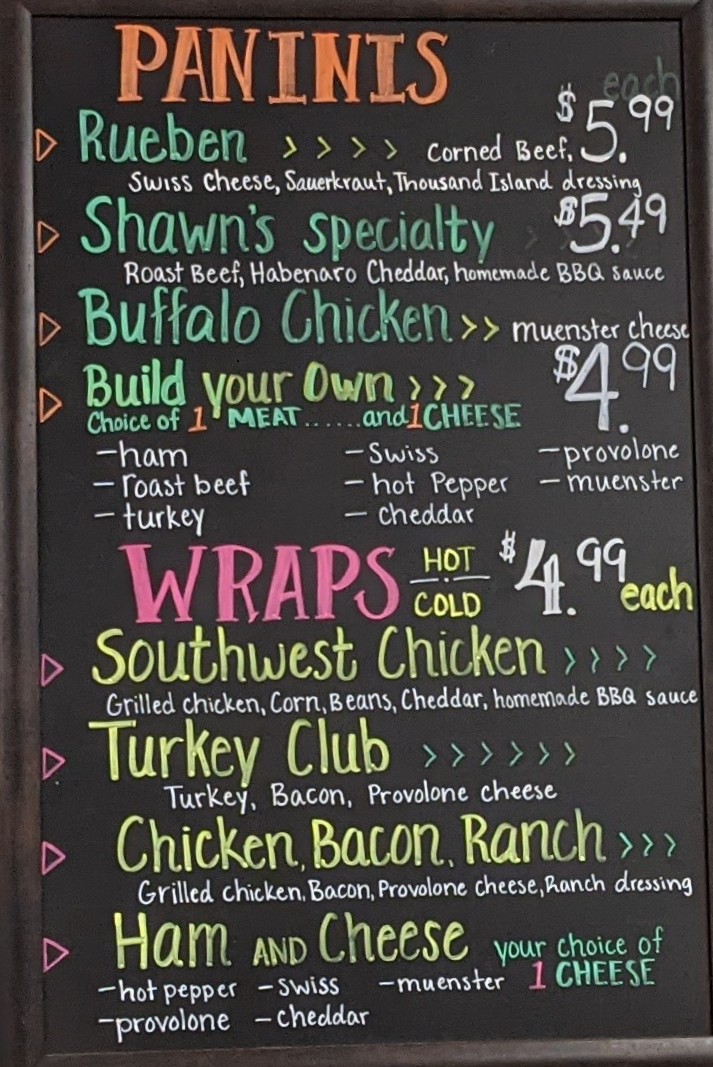 PANINIS
each
Rueben > > > > Corned Beef, $5.99
Swiss Cheese, Sauerkraut, Thousand Island dressing
Shawn's specialty $5.49
Roast Beef, Habenaro Cheddar, homemade BBQ sauce
Buffalo Chicken >> muenster cheese
Build your Own >>> $4.99
Choice of 1 MEAT......and 1 CHEESE
-ham -Swiss -provolone
-roast beef -hot Pepper -muenster
-turkey - cheddar
WRAPS HOT COLD $4.99 each
Southwest Chicken >>>>
Grilled chicken, Corn, Beans, Cheddar, homemade BBQ sauce
Turkey Club >>>>>>
Turkey, Bacon, Provolone cheese
Chicken, Bacon, Ranch >>>
Grilled chicken, Bacon, Provolone cheese, Ranch dressing
Ham AND Cheese your choice of
1 CHEESE
-hot pepper -swiss -muenster
-provolone -cheddar